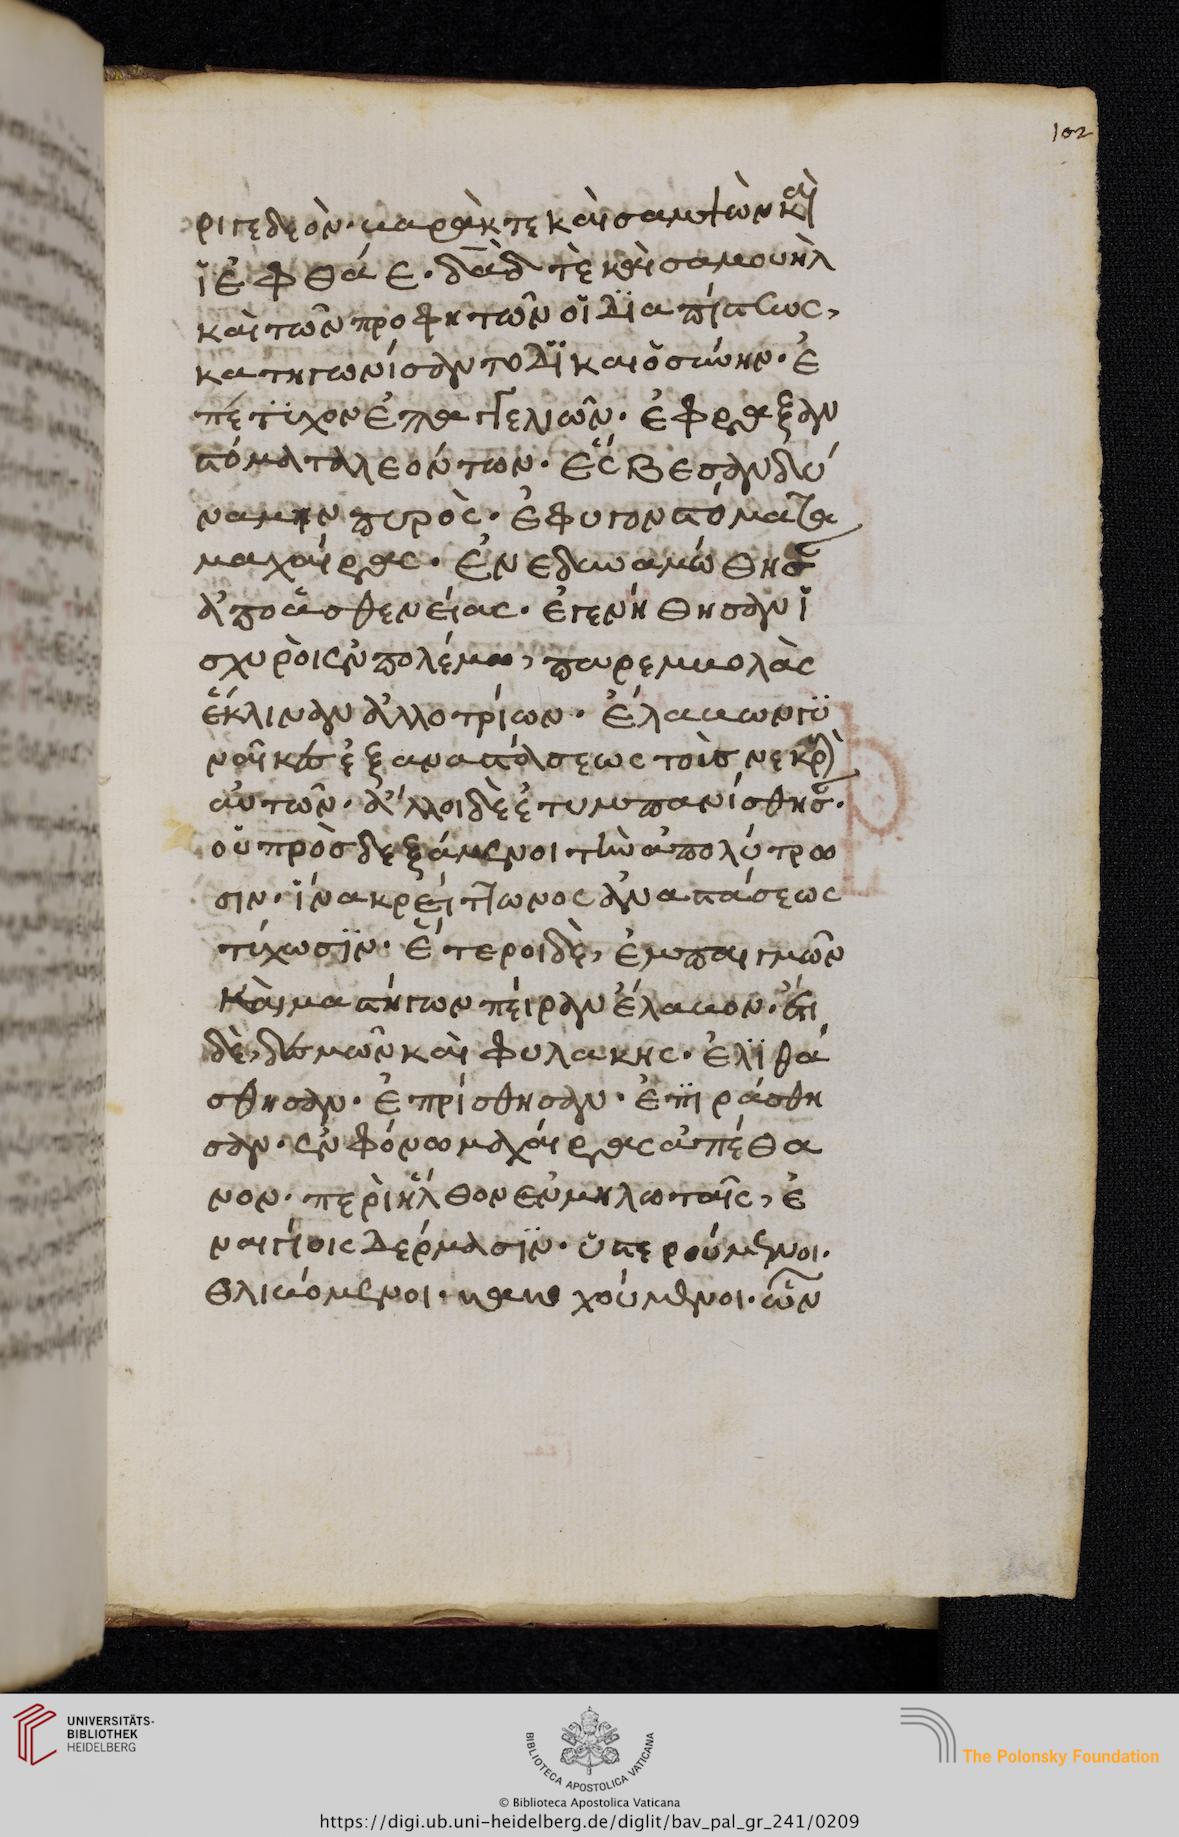 102
ρι γεδεὸν· βαρὰκ τε καὶ σαμψὼν καὶ
ἰεφθάε· δᾱδ τὲ καὶ σαμουὴλ
καὶ τῶν προφητῶν οἳ διὰ πίστεως,
κατηγωνίσαντο δικαιοσύνην· ἐ
πέτυχον ἐπαγγελιῶν· ἔφραξαν
στόματα λεόντων· ἔσβεσαν δύ
ναμιν πυρὸς· ἔφυγον στόματα
μαχαίρας· ἐνεδυναμώθησ
ἀπὸ ἀσθενείας· ἐγενήθησαν ἰ
σχυρὸι ἐν πολέμω, παρεμβολὰς
ἔκλιναν ἀλλοτρίων· ἔλαβων γυ
ναῖκες ἐξ αναστάσεως τοὺσ νεκρ
αὐτῶν· ἄλλοι δὲ ἐτυμπανίσθησ·
οὐ πρὸσδεξάμενοι τὴν ἀπολύτρω
σιν· ἵνα κρείττωνος ἀναστάσεως
τύχωσϊν· ἕτεροι δὲ, ἐμπαιγμῶν
Καὶ μαστήγων πεῖραν ἔλαβον· ἔτι
δὲ, δεσμῶν καὶ φυλακης· ἐλϊθά
σθησαν· ἐπρίσθησαν· ἐπϊράσθη
σαν· ἐν φόνω μαχαίρας ἀπέθα
νον· περὶῆλθον ἐν μηλωταῖς, ἐ
ν αιγίοις δέρμασϊν· ὑστερούμενοι·
θλιβόμενοι· κακουχούμενοι· ὧν
UNIVERSITÄTS-
BIBLIOTHEK
HEIDELBERG
BIBLIOTECA APOSTOLICA VATICANA
The Polonsky Foundation
© Biblioteca Apostolica Vaticana
https://digi.ub.uni-heidelberg.de/diglit/bav_pal_gr_241/0209